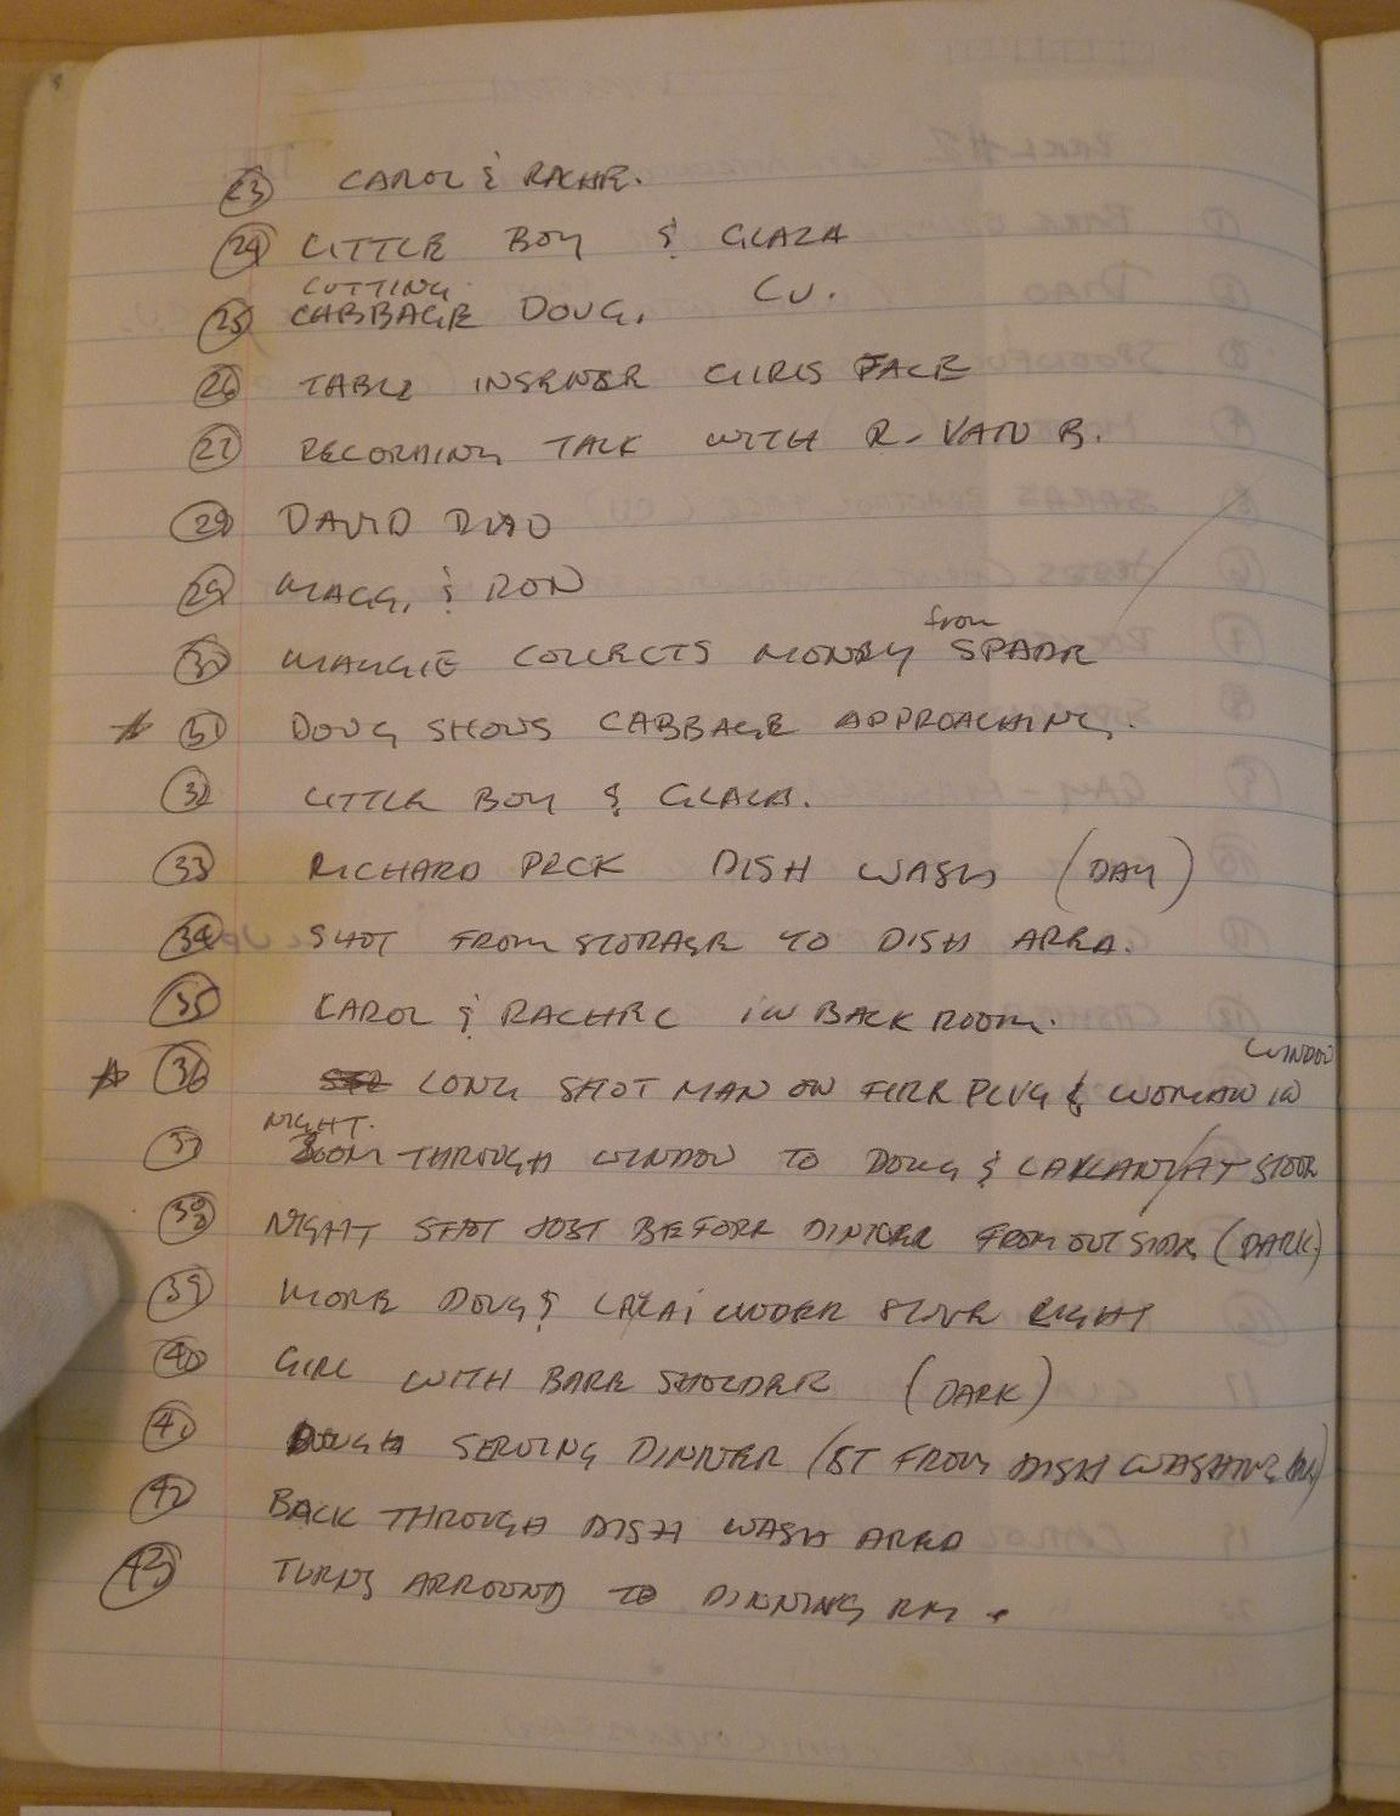 23 CAROL & RACHE.
24 LITTLE BOY & GLAZA
CUTTING CU.
25 CABBAGE DOUG.
26 TABLE INSERWER CHRIS FACE
27 RECORDING TALK WITH R. VAN B.
28 DAVID DIAO
29 MAGG, & RON
from
30 MAUGIE COLLECTS MONEY SPADE
31 DOUG SHOWS CABBAGE APPROACHING.
32 LITTLE BOY & GLAZA.
33 RICHARD PECK DISH WASH (DAY)
34 SHOT FROM STORAGE TO DISH AREA.
35 CAROL & RACHEL IN BACK ROOM.
WINDOW
36 LONG SHOT MAN ON FIRE PLUG & WOMAN IN
NIGHT.
37 ZOOM THROUGH WINDOW TO DOUG & AT STOOR
38 NIGHT SHOT JUST BEFORE DINNER FROM OUT SIDE (DARK)
39 MORE DOUG & UNDER STOVE LIGHT
40 GIRL WITH BARE SHOLDER (DARK)
41 DOUGH SERVING DINNER (ST FROM DISH WASHING
42 BACK THROUGH DISH WASH AREA
43 TURNS ARROUND TO DINNING RM.